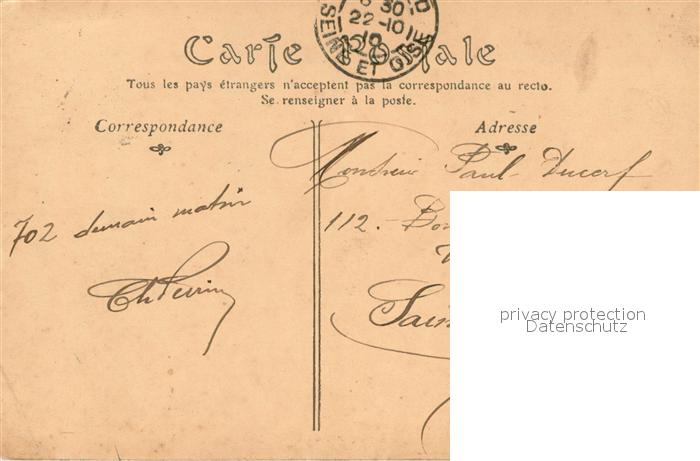 Carte Postale
Tous les pays étrangers n'acceptent pas la correspondance au recto.
Se renseigner à la poste.
Correspondance
702 demain matin
Ch Perrin
Adresse
Monsieur Paul Ducerf
112.
30
22-10
10
SEINE ET OISE
privacy protection
Datenschutz